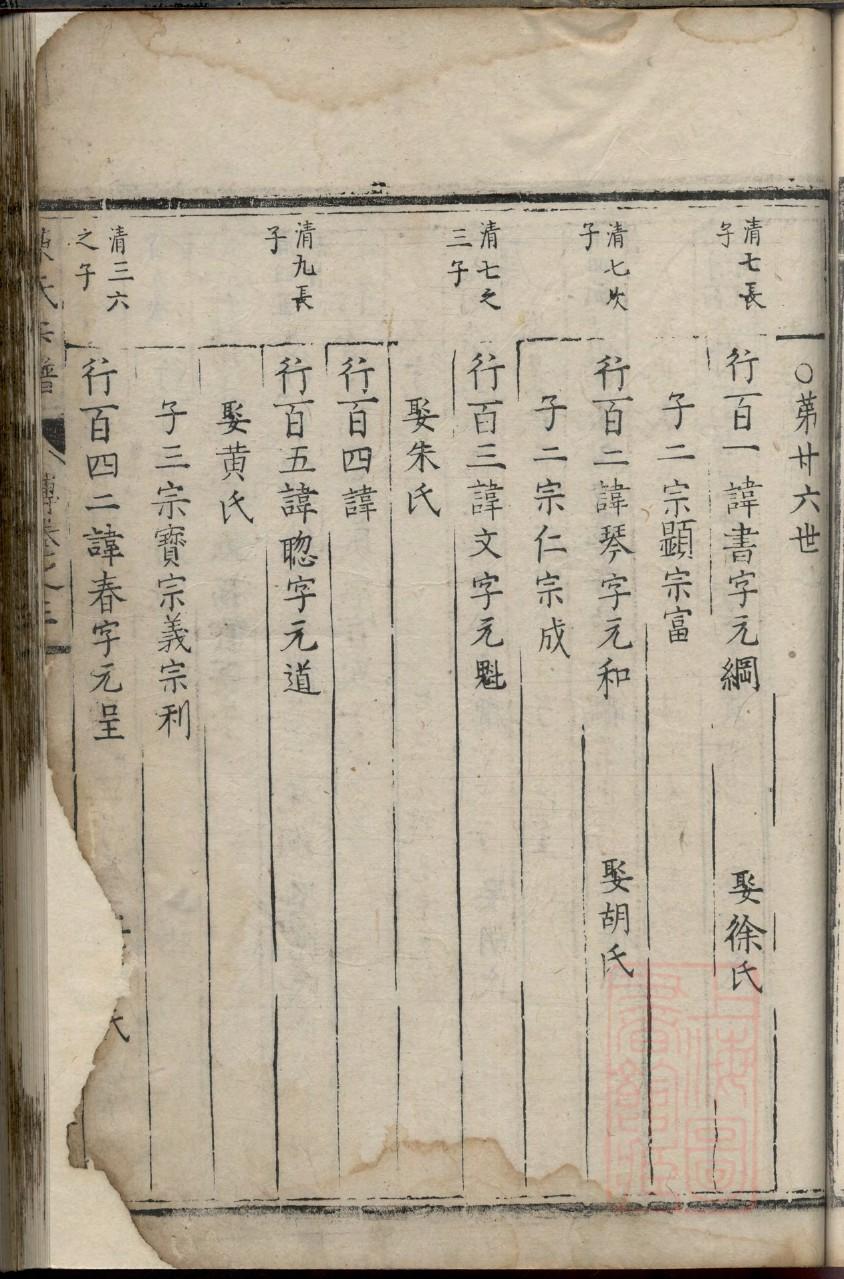 ○苐廿六世
清七長
子
行百一諱書字元綱 娶徐氏
子二宗顕宗富
清七次
子
行百二諱琴字元和 娶胡氏
子二宗仁宗成
清七之
三子
行百三諱文字元魁
娶朱氏
行百四諱
清九長
子
行百五諱聦字元道
娶黄氏
子三宗寳宗義宗利
清三六
之子
行百四二諱春字元呈
氏
氏宗譜
上海圖
書館藏